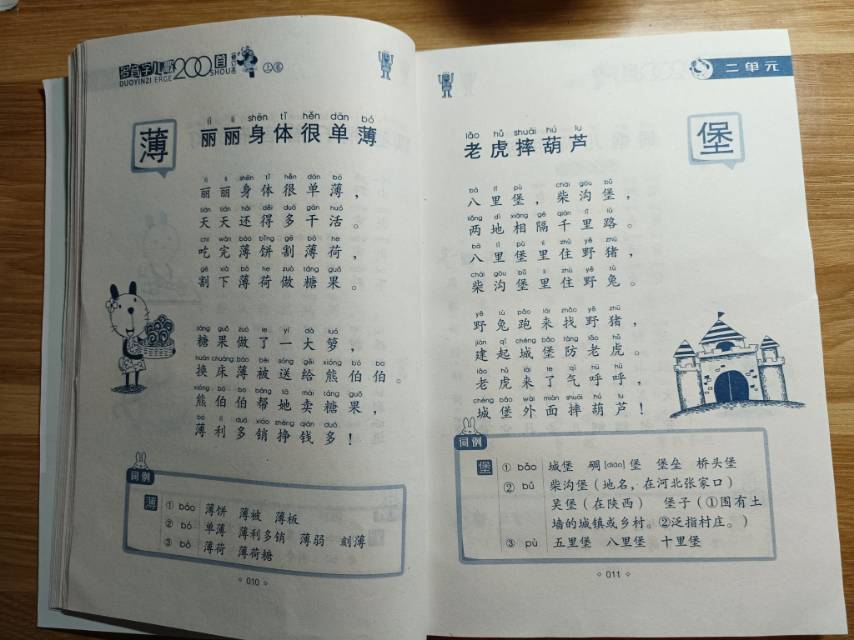 多音字儿歌200首
DUOYINZI ERGE SHOU
上卷
薄
lì lì shēn tǐ hěn dān bó
丽丽身体很单薄
lì lì shēn tǐ hěn dān bó
丽丽身体很单薄，
tiān tiān hái děi duō gàn huó
天天还得多干活。
chī wán báo bǐng gē bò he
吃完薄饼割薄荷，
gē xià bò he zuò táng guǒ
割下薄荷做糖果。
táng guǒ zuò le yí dà luó
糖果做了一大箩，
huàn chuáng báo bèi sòng gěi xióng bó bo
换床薄被送给熊伯伯。
xióng bó bo bāng tā mài táng guǒ
熊伯伯帮她卖糖果，
bó lì duō xiāo zhèng qián duō
薄利多销挣钱多！
词例
薄
① báo 薄饼 薄被 薄板
② bó 单薄 薄利多销 薄弱 刻薄
③ bò 薄荷 薄荷糖
010
二单元
堡
lǎo hǔ shuāi hú lu
老虎摔葫芦
bā lǐ pù chái gōu bǔ
八里堡，柴沟堡，
liǎng dì xiāng gé qiān lǐ lù
两地相隔千里路。
bā lǐ pù lǐ zhù yě zhū
八里堡里住野猪，
chái gōu bǔ lǐ zhù yě tù
柴沟堡里住野兔。
yě tù pǎo lái zhǎo yě zhū
野兔跑来找野猪，
jiàn qǐ chéng bǎo fáng lǎo hǔ
建起城堡防老虎。
lǎo hǔ lái le qì hū hū
老虎来了气呼呼，
chéng bǎo wài miàn shuāi hú lu
城堡外面摔葫芦！
词例
堡
① bǎo 城堡 碉[diāo]堡 堡垒 桥头堡
② bǔ 柴沟堡（地名，在河北张家口）
吴堡（在陕西） 堡子（①围有土
墙的城镇或乡村。②泛指村庄。）
③ pù 五里堡 八里堡 十里堡
011